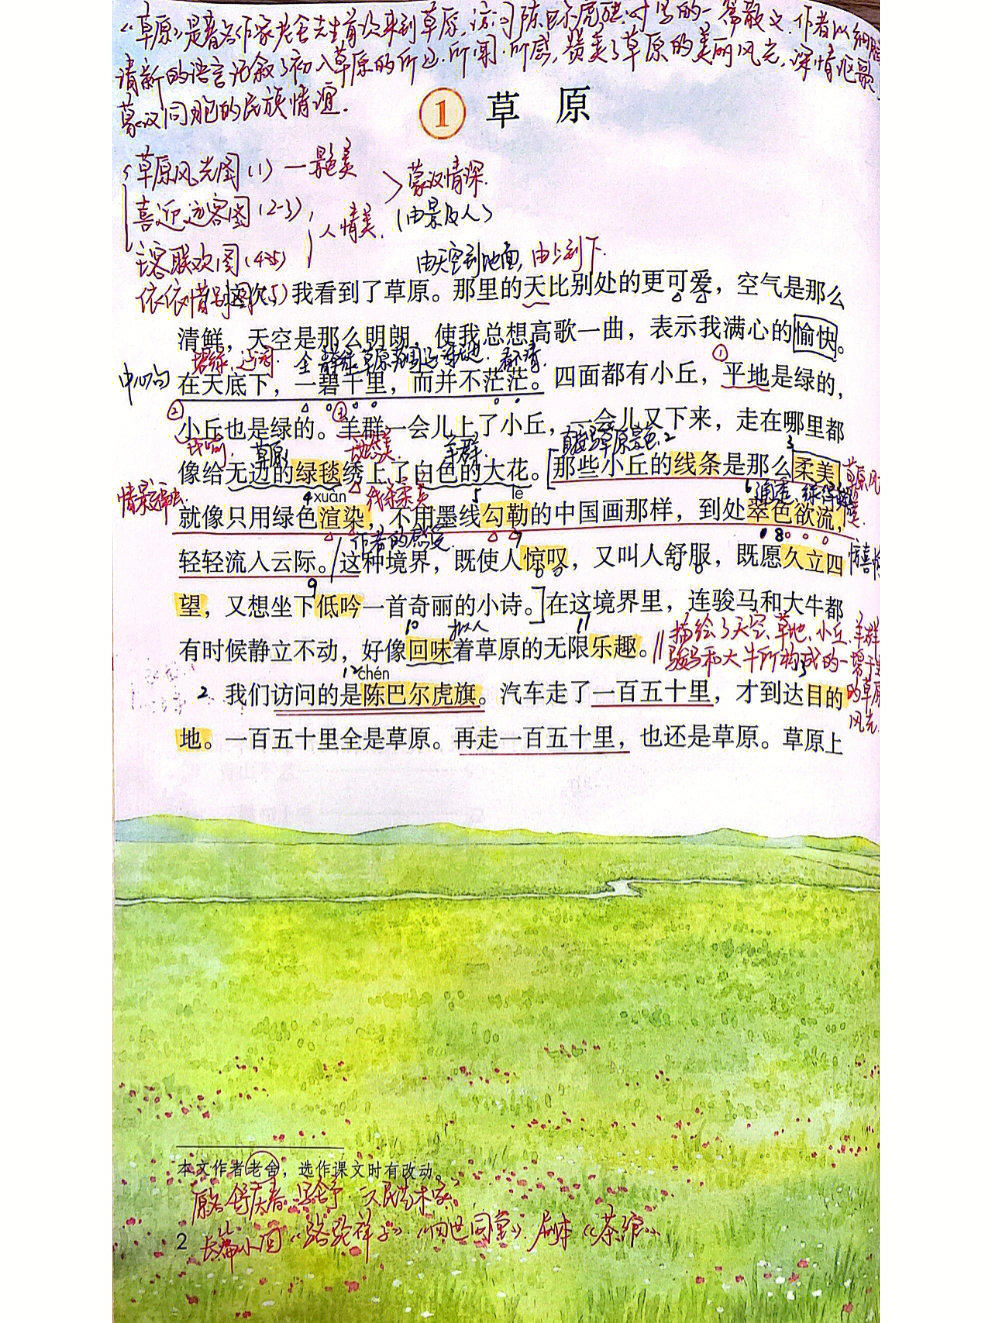 《草原》是著名作家老舍先生首次来到草原,访问陈巴尔虎旗时写的一篇散文.作者以细腻
清新的语言记叙了初入草原的所见.所闻.所感,赞美了草原的美丽风光,深情讴歌
蒙汉同胞的民族情谊.
1 草原
草原风光图(1)一景美
喜迎远客图(2-3)
主客联欢图(4-5)
依依惜别图(5)
人情美.
蒙汉情深.
(由景及人)
由天空到地面,由上到下.
我看到了草原。那里的天比别处的更可爱,空气是那么
清鲜,天空是那么明朗,使我总想高歌一曲,表示我满心的愉快。
中心句
在天底下,一碧千里,而并不茫茫。四面都有小丘,平地是绿的,
小丘也是绿的。羊群一会儿上了小丘,一会儿又下来,走在哪里都
草原 动态美 羊群
像给无边的绿毯绣上了白色的大花。那些小丘的线条是那么柔美,
xuàn lè
就像只用绿色渲染,不用墨线勾勒的中国画那样,到处翠色欲流,
作者的感受
轻轻流入云际。这种境界,既使人惊叹,又叫人舒服,既愿久立四
望,又想坐下低吟一首奇丽的小诗。在这境界里,连骏马和大牛都
拟人
有时候静立不动,好像回味着草原的无限乐趣。
描绘了天空、草地、小丘、羊群
骏马和大牛所构成的一碧千里
的草原
风光
chén
2 我们访问的是陈巴尔虎旗。汽车走了一百五十里,才到达目的
地。一百五十里全是草原。再走一百五十里,也还是草原。草原上
本文作者老舍,选作课文时有改动。
原名舒庆春.字舍予.人民艺术家
长篇小说《骆驼祥子》《四世同堂》剧本《茶馆》
2